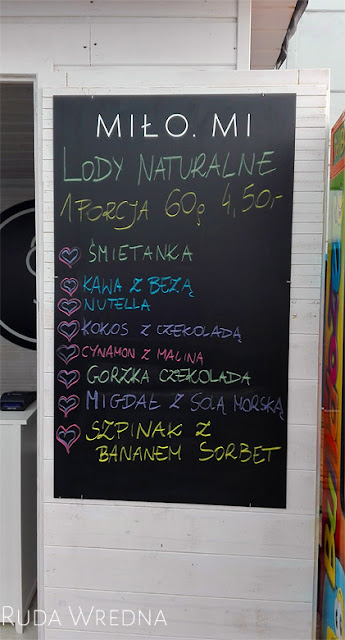 MIŁO. MI
LODY NATURALNE
1 PORCJA 60g 4,50,-
ŚMIETANKA
KAWA Z BEZĄ
NUTELLA
KOKOS Z CZEKOLADĄ
CYNAMON Z MALINĄ
GORZKA CZEKOLADA
MIGDAŁ Z SOLĄ MORSKĄ
SZPINAK Z
BANANEM SORBET
RUDA WREDNA